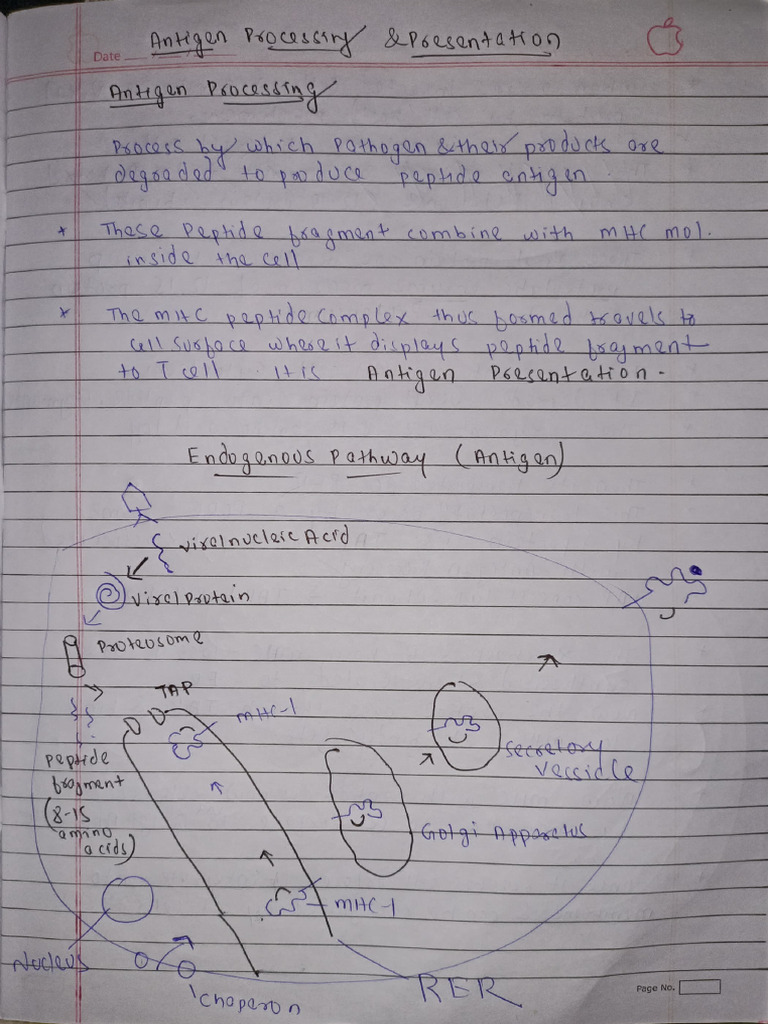 Antigen Processing & Presentation
Date
Antigen Processing
Process by which Pathogen & their products are
degraded to produce peptide antigen.
* These Peptide fragment combine with MHC mol.
inside the cell
* The MHC peptide complex thus formed travels to
cell surface where it displays peptide fragment
to T cell. It is Antigen Presentation.
Endogenous Pathway (Antigen)
Viral nucleic Acid
Viral Protein
Proteosome
TAP
MHC-1
peptide
fragment
(8-15
amino
acids)
Secretory
Vessidle
Golgi Apparatus
MHC-1
Nucleus
Chaperon
RER
Page No.